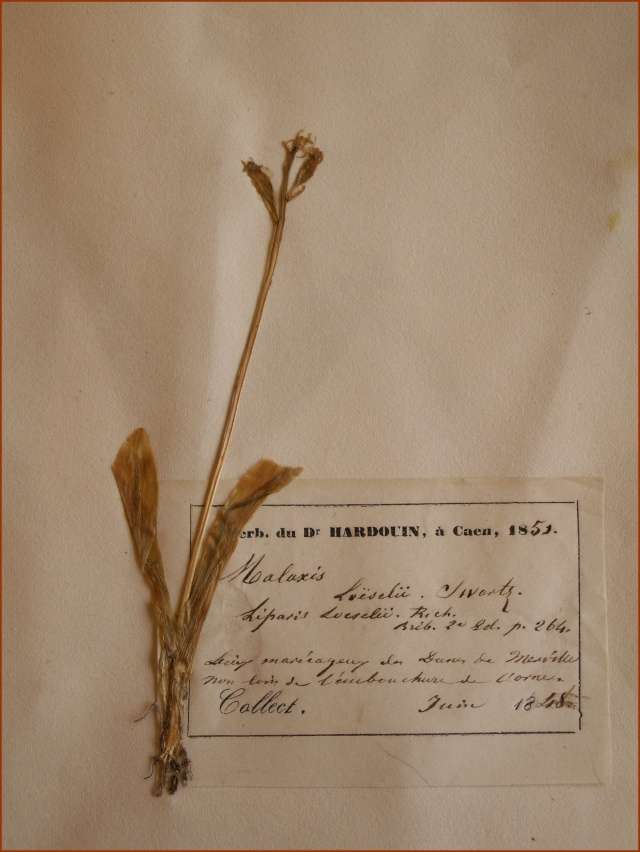 erb. du Dr HARDOUIN, à Caen, 1851.
Malaxis
Loëselii. Swartz.
Liparis Loeselii. Rich.
Bréb. 2e Ed. p. 264.
Lieux marécageux des Dunes de Merville
non loin de l'embouchure de l'orne.
Collect. Juin 1848